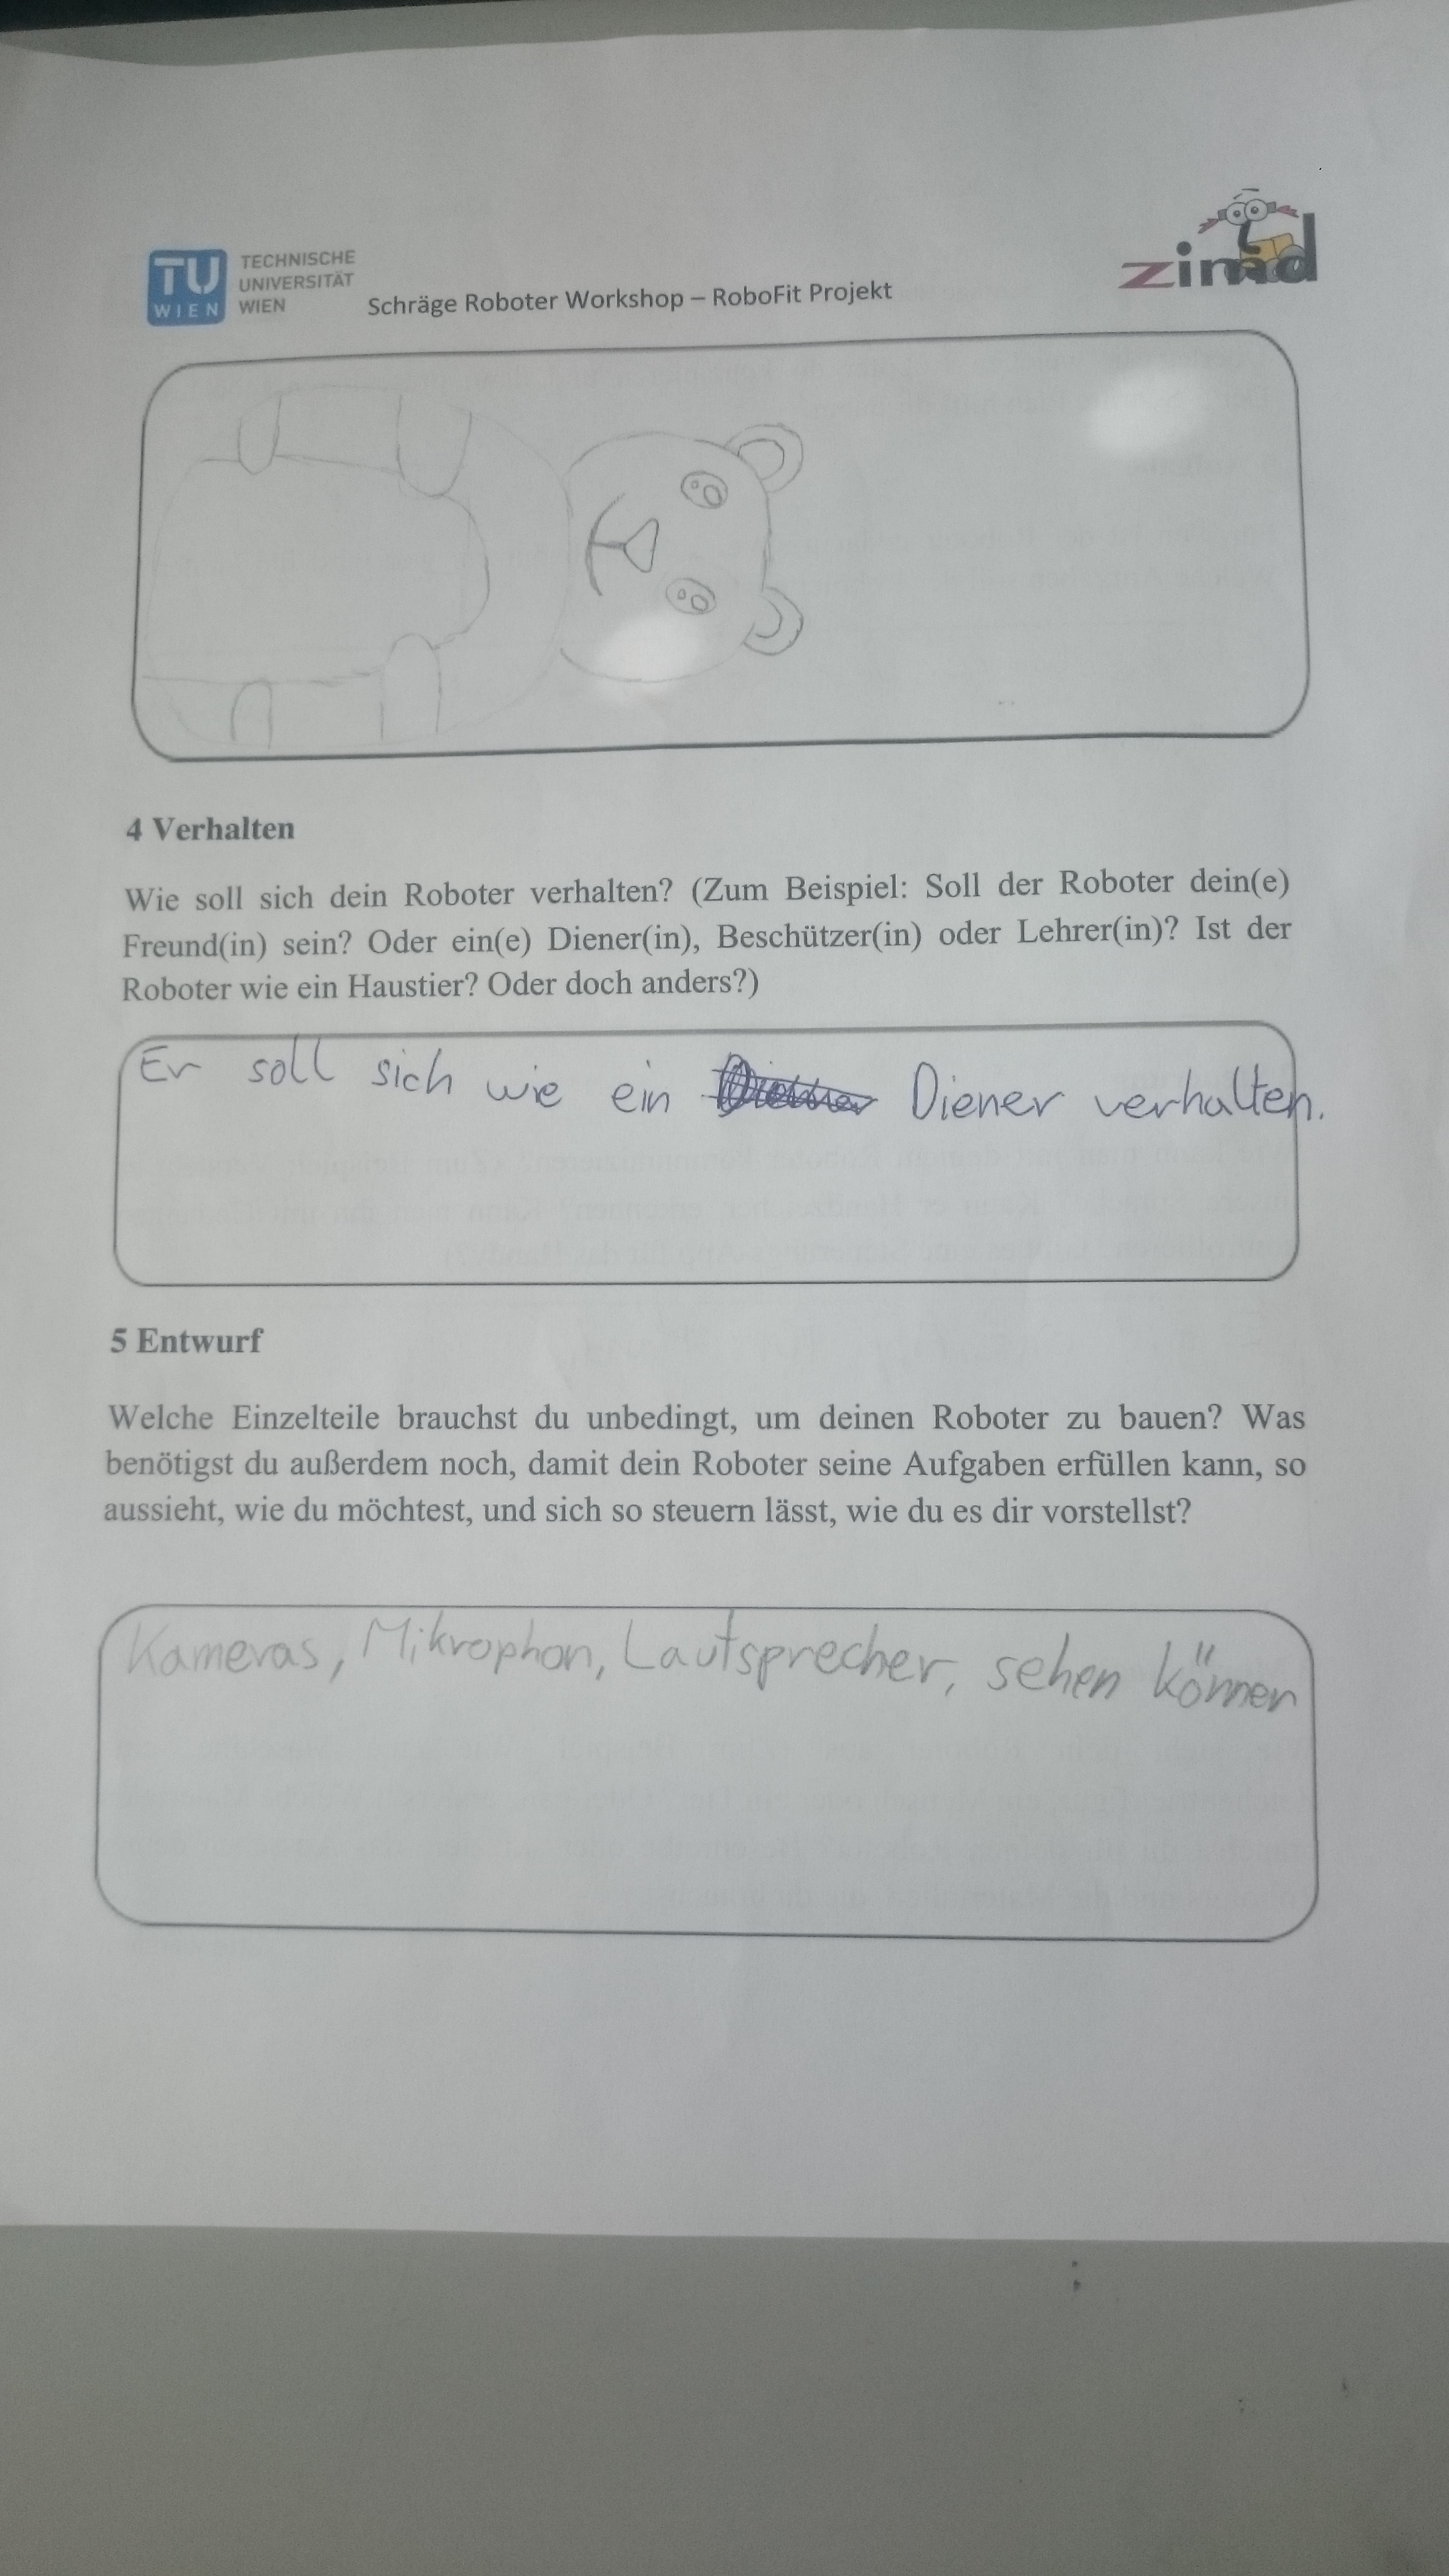 TU
WIEN
TECHNISCHE
UNIVERSITÄT
WIEN
Schräge Roboter Workshop – RoboFit Projekt
zimd
4 Verhalten
Wie soll sich dein Roboter verhalten? (Zum Beispiel: Soll der Roboter dein(e)
Freund(in) sein? Oder ein(e) Diener(in), Beschützer(in) oder Lehrer(in)? Ist der
Roboter wie ein Haustier? Oder doch anders?)
Er soll sich wie ein Diener verhalten.
5 Entwurf
Welche Einzelteile brauchst du unbedingt, um deinen Roboter zu bauen? Was
benötigst du außerdem noch, damit dein Roboter seine Aufgaben erfüllen kann, so
aussieht, wie du möchtest, und sich so steuern lässt, wie du es dir vorstellst?
Kameras, Mikrophon, Lautsprecher, sehen können